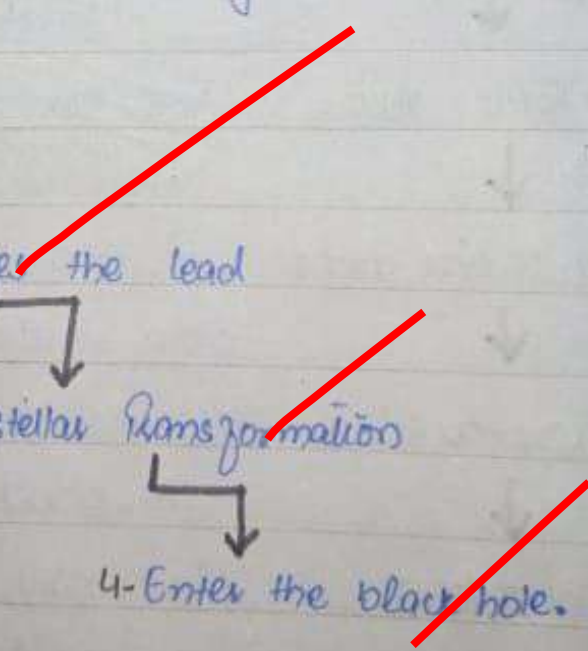 the lead
stellar Transformation
4-Enter the black hole.